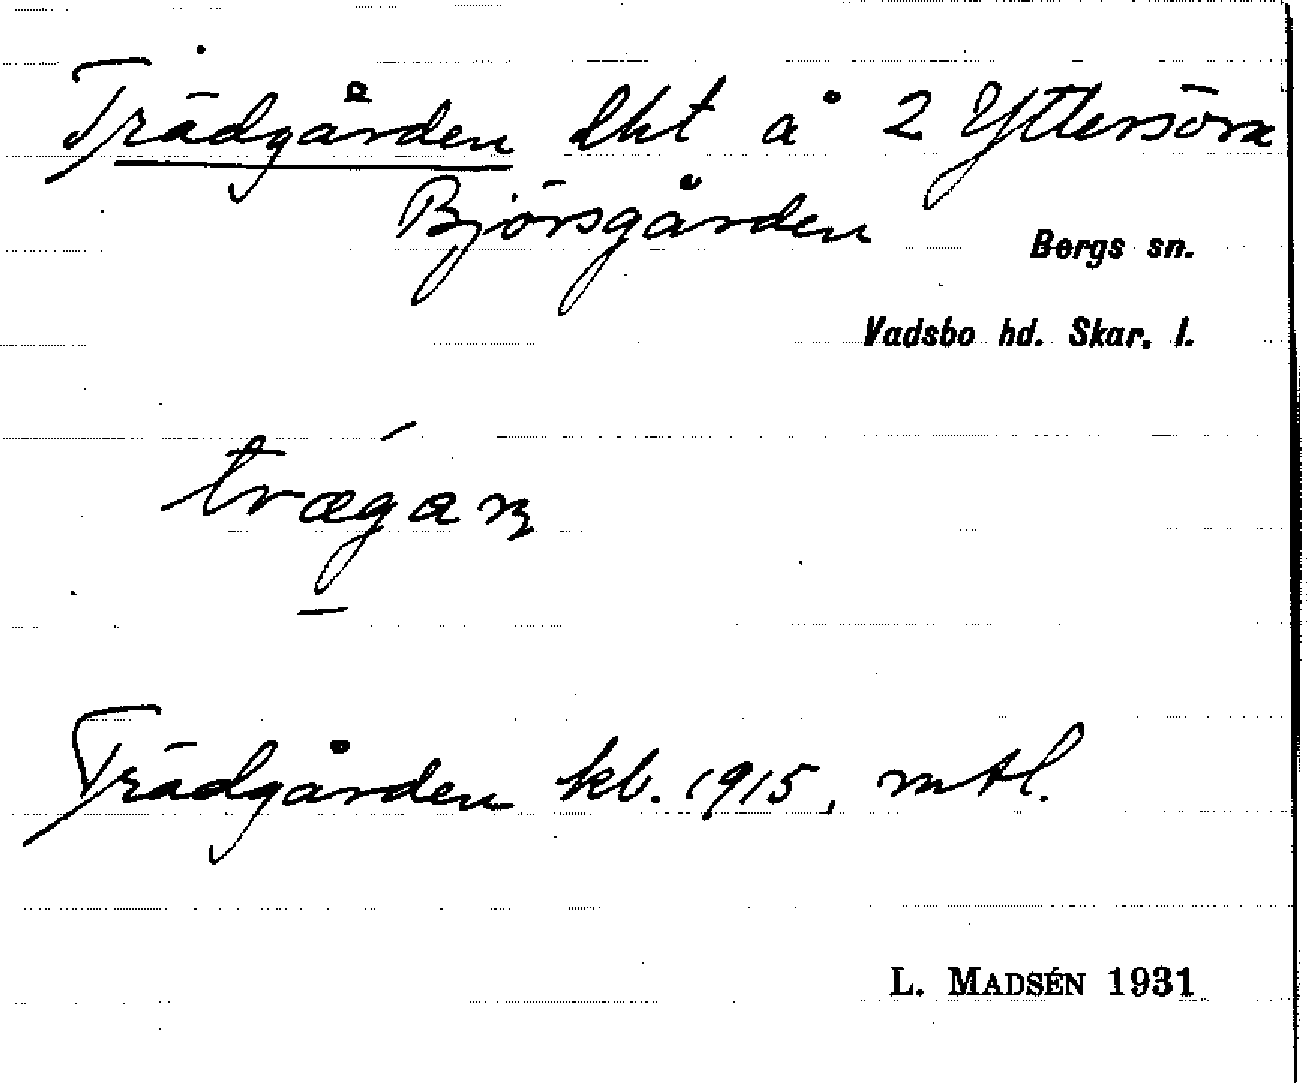 Trädgården lht å 2 Yttersöra
Björsgården
Bergs sn.
Vadsbo hd. Skar. l.
trægan
Trädgården kb. 1915, mtl.
L. MADSÉN 1931